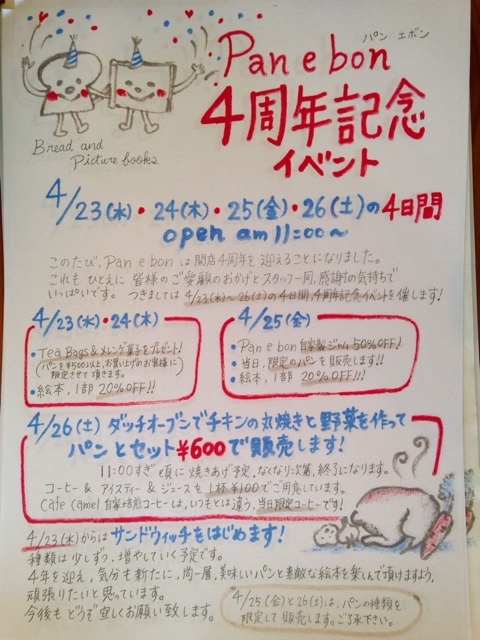 Pan e bon
パン エボン
4周年記念
イベント
Bread and
Picture books
4/23(水)・24(木)・25(金)・26(土)の4日間
open am 11:00〜
このたび、Pan e bon は開店4周年を迎えることになりました。
これも ひとえに 皆様のご愛顧のおかげとスタッフ一同、感謝の気持ちで
いっぱいです。 つきましては 4/23(水)〜26(土)の4日間、4周年記念イベントを催します!
4/23(水)・24(木)
・Tea Bags & メレンゲ菓子をプレゼント!
(パンを¥500以上、お買い上げのお客様に
限定させて頂きます。
・絵本、1部 20%OFF!!
4/25(金)
・Pan e bon 自家製ジャム 50%OFF!
・当日、限定のパンを販売します!!
・絵本、1部 20%OFF!!!
4/26(土) ダッチオーブンでチキンの丸焼きと野菜を作って
パンとセット¥600で販売します!
11:00すぎ頃に 焼きあげ予定、なくなり次第、終了になります。
コーヒー & アイスティー & ジュースを 1杯¥100でご用意しています。
Cafe Camel 自家焙煎コーヒーは、いつもとは違う、当日限定コーヒーです!
4/23(水)からはサンドウィッチをはじめます!
種類は少しずつ、増やしていく予定です。
4年を迎え、気分も新たに、尚一層、美味しいパンと素敵な絵本を楽しんで頂けますよう、
頑張りたいと思っています。
今後も どうぞ宜しくお願い致します。
4/25(金)と26(土)は、パンの種類を
限定して 販売します。ご了承下さい。